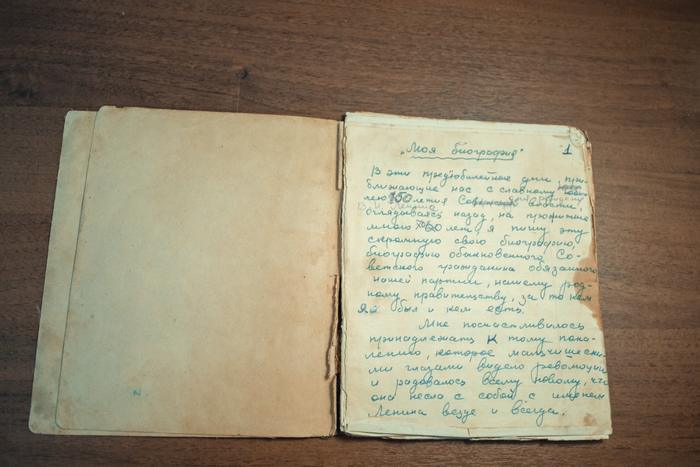 „Моя биография" 1
В эти предъюбилейные дни, при-
ближающие нас с славному
лею 100 летия Советской власти,
оглядываясь назад, на прожитые
мною 60 лет, я пишу эту
скромную свою биографию,
биографию обыкновенного Со-
ветского гражданина обязанного
нашей партии, нашему род-
ному правительству, за то кем
я был и кем есть.
Мне посчастливилось
принадлежать к тому поко-
лению, которое мальчишески-
ми глазами видело революцию
и радовалось всему новому, что
она несла с собой с именем
Ленина везде и всегда.